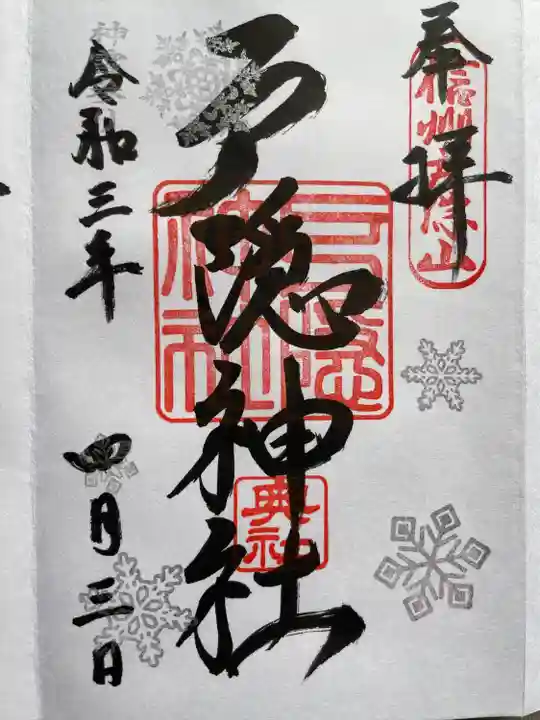 奉拝
信州戸隠山
戸隠神社
戸隠神社
奥社
令和三年
四月三日